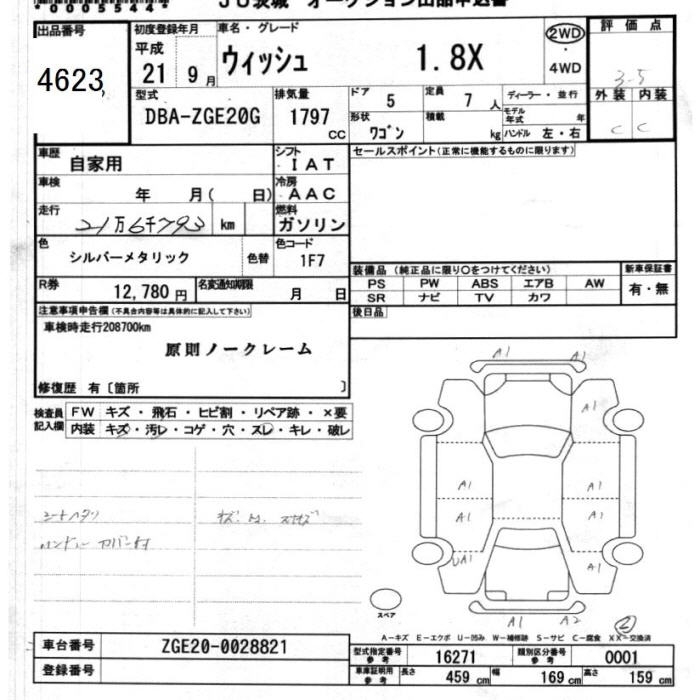 00055440
JU茨城 オークション出品申込書
出品番号 4623
初度登録年月 平成 21 9月
車名・グレード ウィッシュ 1.8X
2WD ・ 4WD
評価点 3.5
外装 内装 C C
型式 DBA-ZGE20G
排気量 1797 CC
ドア 5
定員 7 人
ディーラー・並行
モデル年式 年
形状 ワゴン
積載 kg
ハンドル 左・右
車歴 自家用
シフト IAT
セールスポイント(正常に機能するものに限ります)
車検 年 月( 日)
冷房 AAC
走行 21万6千793 km
燃料 ガソリン
色 シルバーメタリック 色替
色コード 1F7
装備品 (純正品に限り○をつけてください) 新車保証書
PS PW ABS エアB AW 有・無
SR ナビ TV カワ
R券 12,780 円
名変通知期限 月 日
後日品
注意事項申告欄(不具合内容等は具体的に記入して下さい)
車検時走行208700km
原則ノークレーム
修復歴 有〔箇所 〕
検査員記入欄 FW キズ・飛石・ヒビ割・リペア跡・×要
内装 キズ・汚レ・コゲ・穴・スレ・キレ・破レ
シートヘタリ
ハンドルカバー付
A1 A1
A1
A1 A1
A1 A1
UA1 A1
A1 A2
スペア
A-キズ E-エクボ U-凹み W-補修跡 S-サビ C-腐食 XX-交換済
車台番号 ZGE20-0028821
登録番号
型式指定番号 参考 16271
類別区分番号 参考 0001
車庫証明用 参考 長さ 459 cm 幅 169 cm 高さ 159 cm